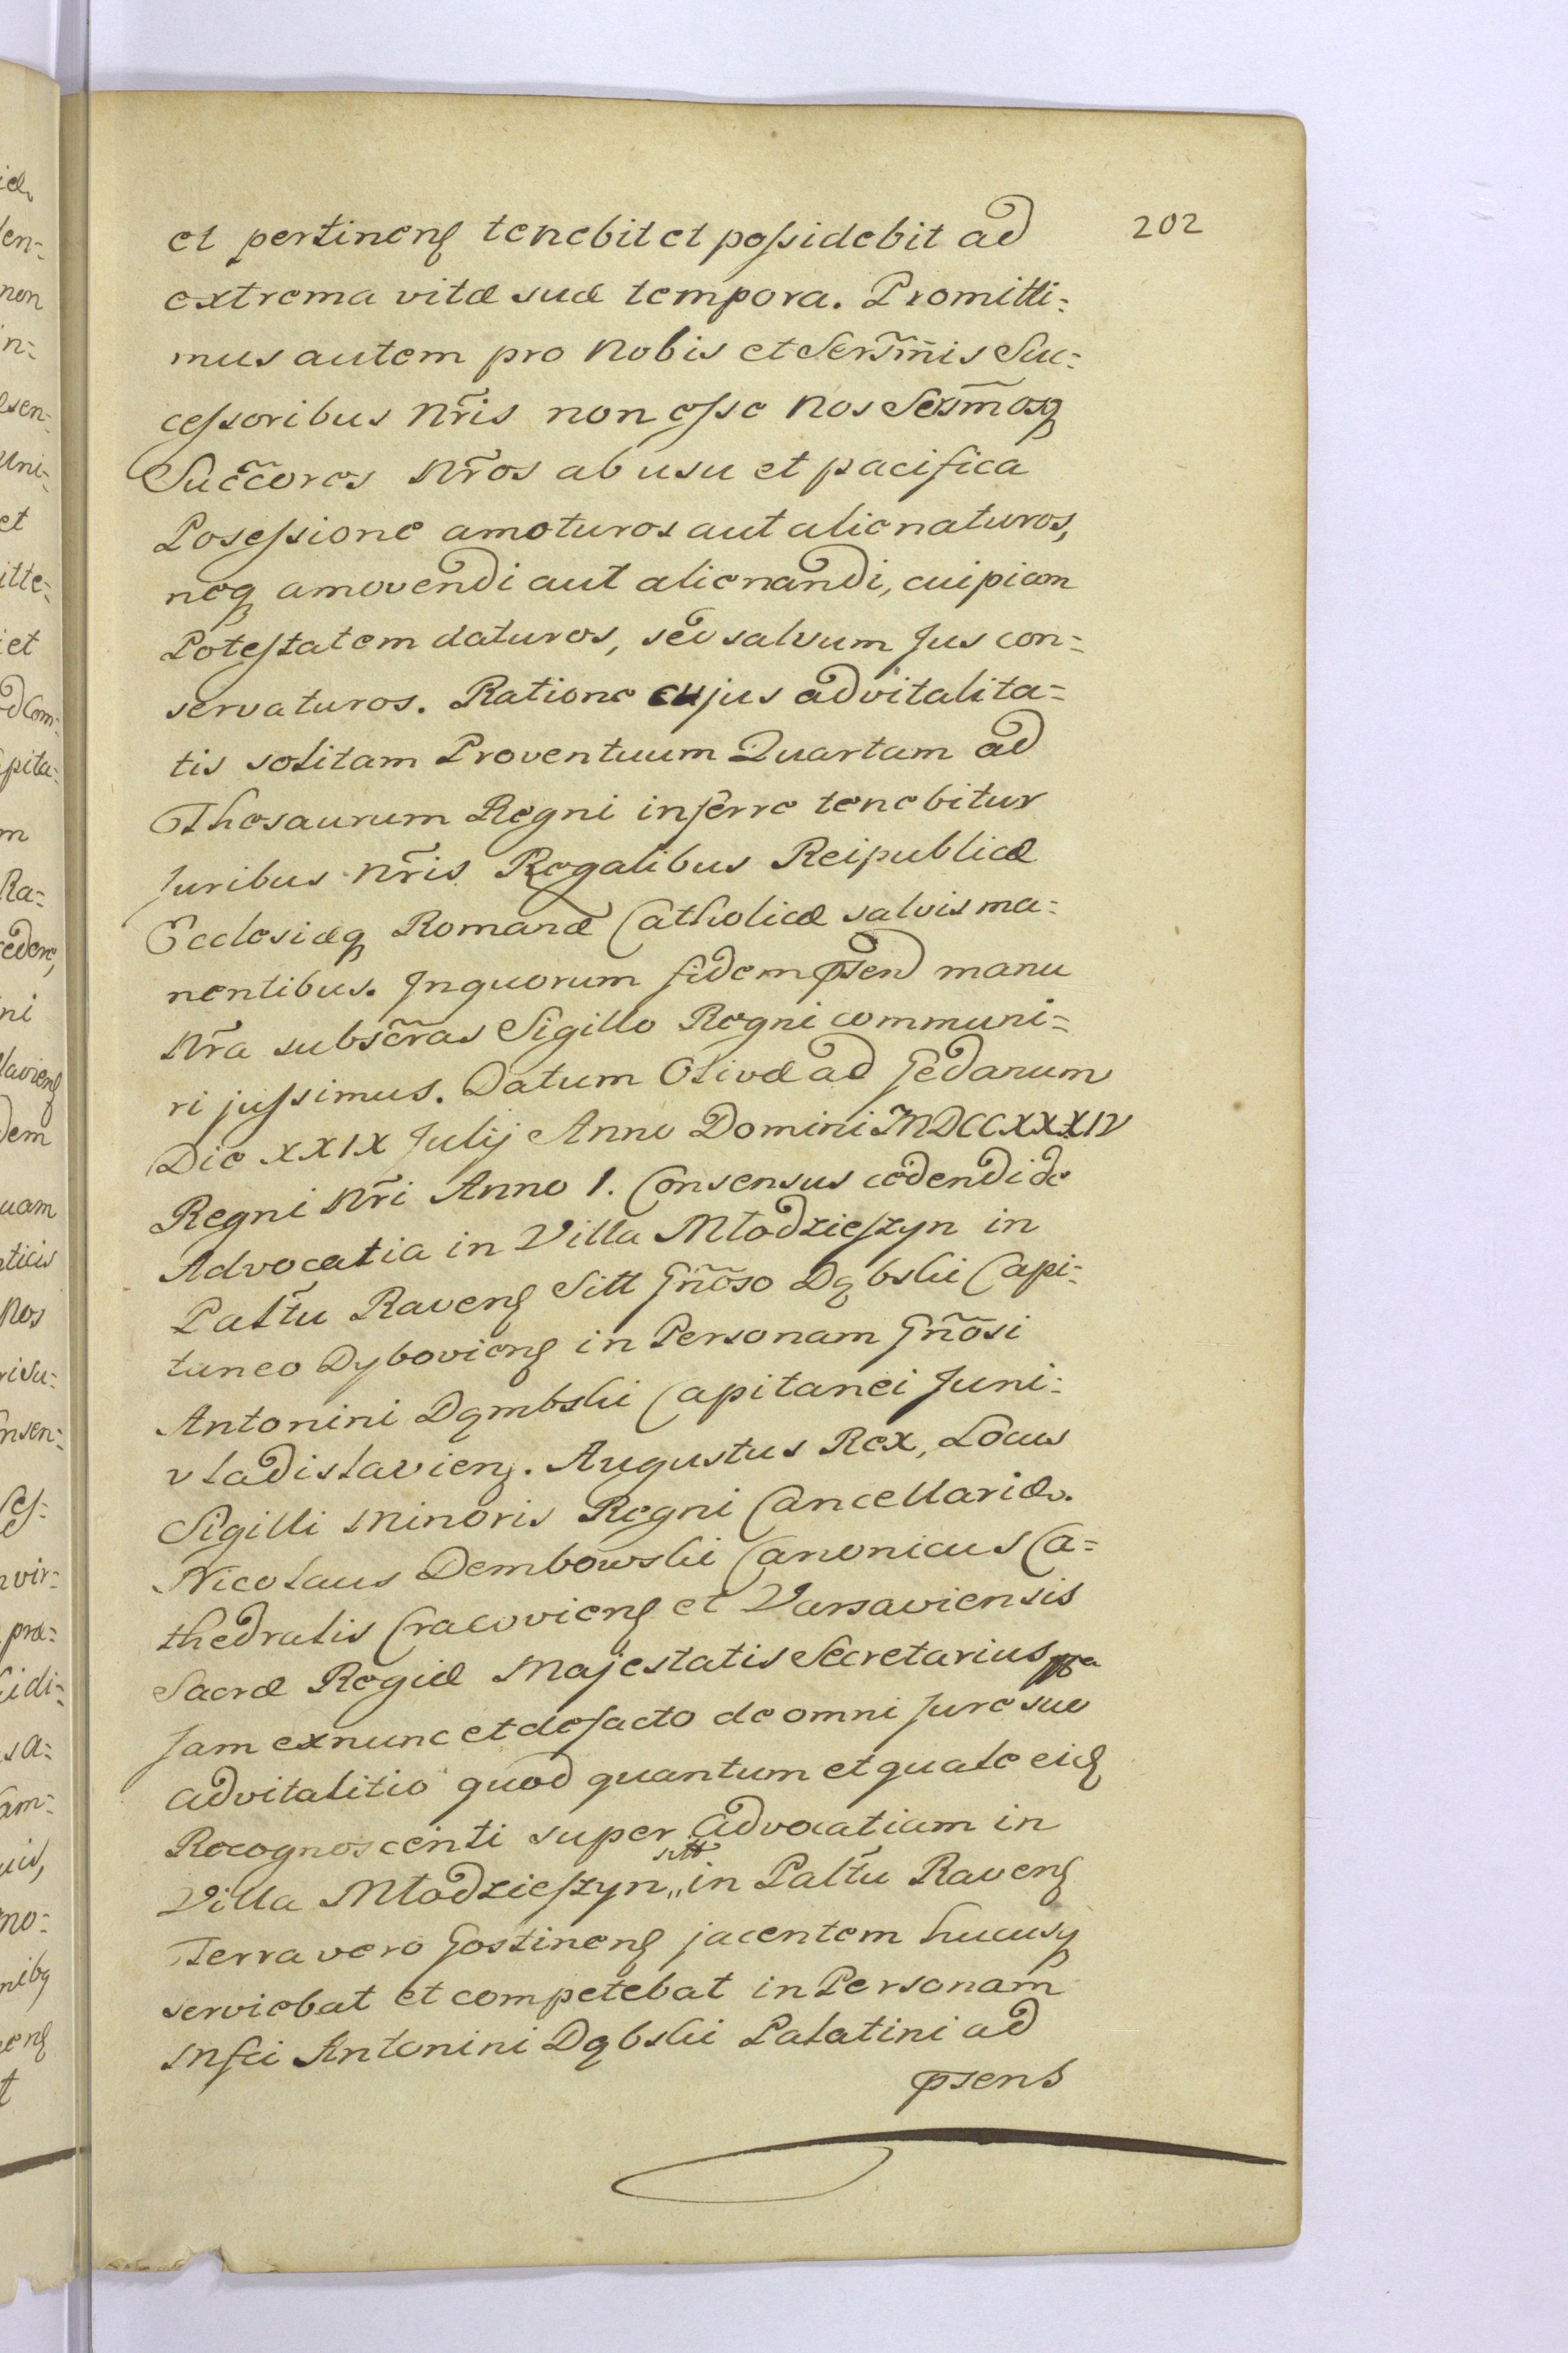 202
et pertinenſ tenebit et poſsidebit ad
extrema vitæ suæ tempora. Promitti=
mus autem pro Nobis et Serm̃is Suc=
ceſsoribus Nr̃is non eſse Nos Serm̃osq
Succ̃ores Nr̃os ab usu et pacifica
Poseſsione amoturos aut alienaturos,
neq amovendi aut alienandi, cuipiam
Poteſtatem daturos, seu salvum Jus con=
servaturos. Ratione cujus advitalita=
tis solitam Proventuum Quartam ad
Thesaurum Regni inferre tenebitur
Juribus Nr̃is Regalibus Reipublicæ
Ecclesiæq Romanæ Catholicæ salvis ma=
nentibus. In quorum fidem p̃sen manu
Nr̃a subscr̃as Sigillo Regni communi=
ri juſsimus. Datum Olivæ ad Gedanum
Die XXIX Julij Anno Domini MDCCXXXIV
Regni Nr̃i Anno 1. Consensus cedendi de
Advocatia in Villa Młodzieſzyn in
Palt̃u Ravenſ Sitt Gñõso Dąbski Capi=
taneo Dybovienſ in Personam Gñõsi
Antonini Dąmbski Capitanei Juni=
vladislavienſ. Augustus Rex, Locus
Sigilli Minoris Regni Cancellariæ.
Nicolaus Dembowski Canonicus Ca=
thedralis Cracovienſ et Varsaviensis
Sacræ Regiæ Majestatis Secretarius
Jam exnunc et defacto de omni Jure suo
advitalitio quod quantum et quale eid
Recognoscenti super Advocatiam in
Villa Młodzieſzyn sitt in Palt̃u Ravenſ
Terra vero Gostinenſ jacentem hucusq
serviebat et competebat in Personam
Mſci Antonini Dąbski Palatini ad
p̃sens